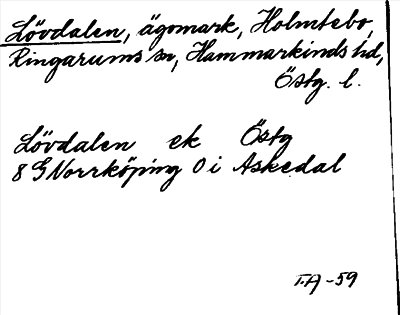 Lövdalen, ägomark, Holmtebo,
Ringarums sn, Hammarkinds hd,
Östg. l.
Lövdalen ek Östg
8 G Norrköping O i Askedal
T.A-59